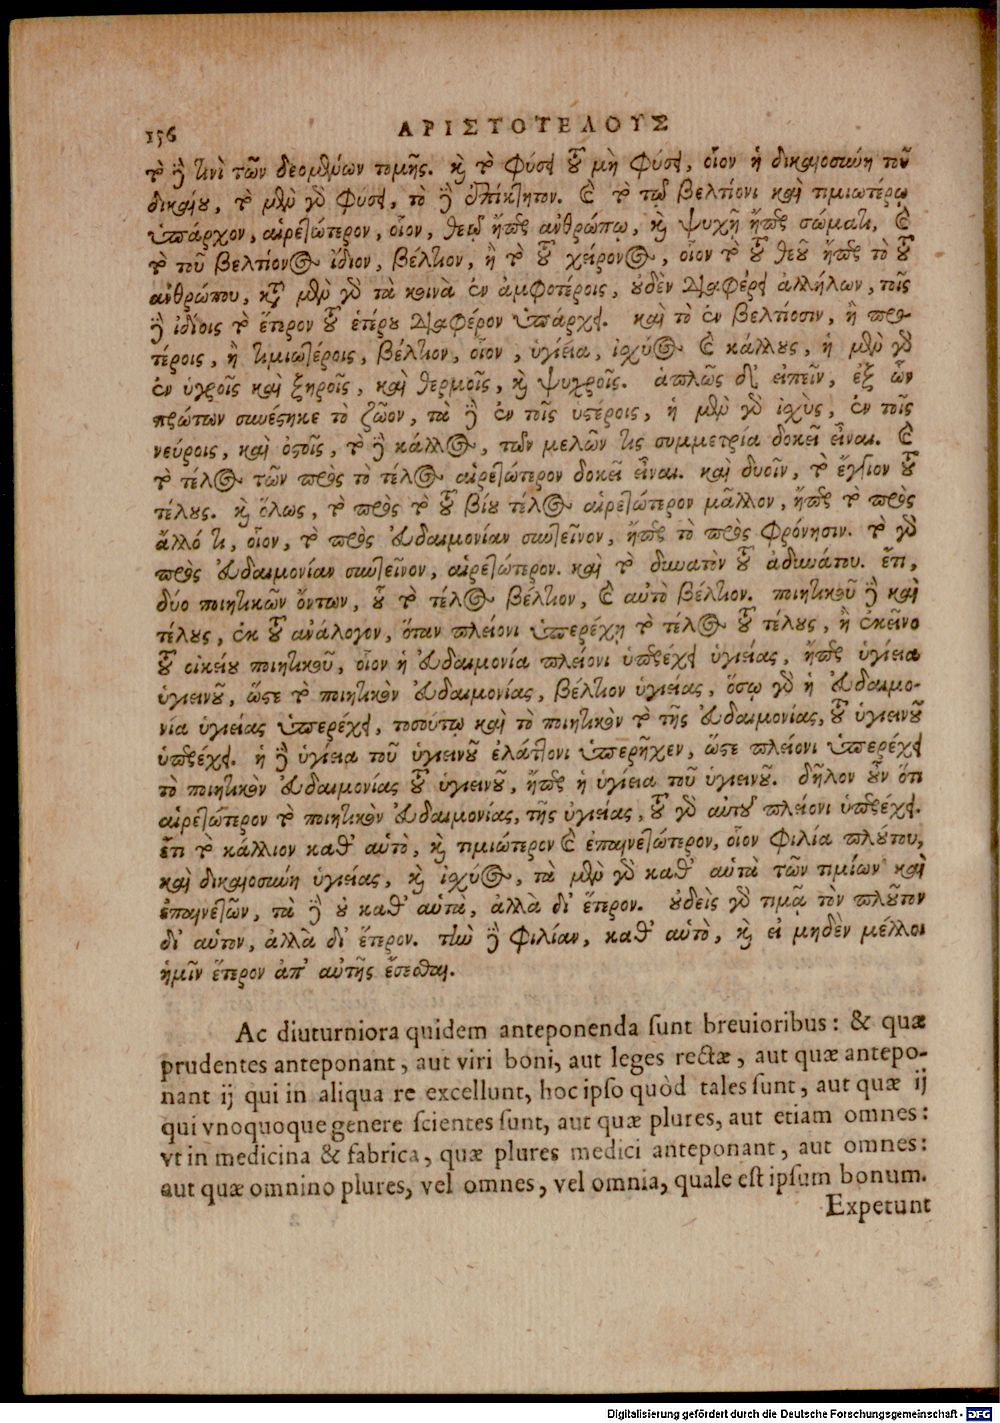 156 ΑΡΙΣΤΟΤΕΛΟΥΣ
τὸ δὲ τινὶ τῶν δεομένων τομῆς. καὶ τὸ φύσει τοῦ μὴ φύσει, οἷον ἡ δικαιοσύνη τοῦ
δικαίου, τὸ μὲν γὰρ φύσει, τὸ δὲ ἐπίκτητον. καὶ τὸ τῷ βελτίονι καὶ τιμιωτέρῳ
ὑπάρχον, αἱρετώτερον, οἷον, θεῷ ἤπερ ἀνθρώπῳ, καὶ ψυχῇ ἤπερ σώματι, καὶ
τὸ τοῦ βελτίονος ἴδιον, βέλτιον, ἢ τὸ τοῦ χείρονος, οἷον τὸ τοῦ θεοῦ ἤπερ τὸ τοῦ
ἀνθρώπου, κατὰ μὲν γὰρ τὰ κοινὰ ἐν ἀμφοτέροις, οὐδὲν διαφέρει ἀλλήλων, τοῖς
δὲ ἰδίοις τὸ ἕτερον τοῦ ἑτέρου διαφέρον ὑπάρχει. καὶ τὸ ἐν βελτίοσιν, ἢ προ-
τέροις, ἢ τιμιωτέροις, βέλτιον, οἷον, ὑγίεια, ἰσχύος καὶ κάλλους, ἡ μὲν γὰρ
ἐν ὑγροῖς καὶ ξηροῖς, καὶ θερμοῖς, καὶ ψυχροῖς. ἁπλῶς δ' εἰπεῖν, ἐξ ὧν
πρώτων συνέστηκε τὸ ζῶον, τὰ δὲ ἐν τοῖς ὑστέροις, ἡ μὲν γὰρ ἰσχὺς, ἐν τοῖς
νεύροις, καὶ ὀστοῖς, τὸ δὲ κάλλος, τῶν μελῶν τις συμμετρία δοκεῖ εἶναι. καὶ
τὸ τέλος τῶν πρὸς τὸ τέλος αἱρετώτερον δοκεῖ εἶναι. καὶ δυοῖν, τὸ ἔγγιον τοῦ
τέλους. καὶ ὅλως, τὸ πρὸς τὸ τοῦ βίου τέλος αἱρετώτερον μᾶλλον, ἤπερ τὸ πρὸς
ἄλλό τι, οἷον, τὸ πρὸς εὐδαιμονίαν συντεῖνον, ἤπερ τὸ πρὸς φρόνησιν. τὸ γὰρ
πρὸς εὐδαιμονίαν συντεῖνον, αἱρετώτερον. καὶ τὸ δυνατὸν τοῦ ἀδυνάτου. ἔτι,
δύο ποιητικῶν ὄντων, οὗ τὸ τέλος βέλτιον, καὶ αὐτὸ βέλτιον. ποιητικοῦ δὲ καὶ
τέλους, ἐκ τοῦ ἀνάλογον, ὅταν πλείονι ὑπερέχῃ τὸ τέλος τοῦ τέλους, ἢ ἐκεῖνο
τοῦ οἰκείου ποιητικοῦ, οἷον ἡ εὐδαιμονία πλείονι ὑπερέχει ὑγιείας, ἤπερ ὑγίεια
ὑγιεινοῦ, ὥστε τὸ ποιητικὸν εὐδαιμονίας, βέλτιον ὑγιείας, ὅσῳ γὰρ ἡ εὐδαιμο-
νία ὑγιείας ὑπερέχει, τοσούτῳ καὶ τὸ ποιητικὸν τὸ τῆς εὐδαιμονίας, τοῦ ὑγιεινοῦ
ὑπερέχει. ἡ δὲ ὑγίεια τοῦ ὑγιεινοῦ ἐλάττονι ὑπερῆχεν, ὥστε πλείονι ὑπερέχει
τὸ ποιητικὸν εὐδαιμονίας τοῦ ὑγιεινοῦ, ἤπερ ἡ ὑγίεια τοῦ ὑγιεινοῦ. δῆλον οὖν ὅτι
αἱρετώτερον τὸ ποιητικὸν εὐδαιμονίας, τῆς ὑγιείας, τοῦ γὰρ αὐτοῦ πλείονι ὑπερέχει.
ἔτι τὸ κάλλιον καθ' αὑτὸ, καὶ τιμιώτερον καὶ ἐπαινετώτερον, οἷον φιλία πλούτου,
καὶ δικαιοσύνη ὑγιείας, καὶ ἰσχύος, τὰ μὲν γὰρ καθ' αὑτὰ τῶν τιμίων καὶ
ἐπαινετῶν, τὰ δὲ οὐ καθ' αὑτὰ, ἀλλὰ δι' ἕτερον. οὐδεὶς γὰρ τιμᾷ τὸν πλοῦτον
δι' αὑτον, ἀλλὰ δι' ἕτερον. τὴν δὲ φιλίαν, καθ' αὑτὸ, καὶ εἰ μηδὲν μέλλοι
ἡμῖν ἕτερον ἀπ' αὐτῆς ἔσεσθαι.
Ac diuturniora quidem anteponenda sunt breuioribus: & quæ
prudentes anteponant, aut viri boni, aut leges rectæ, aut quæ antepo-
nant ij qui in aliqua re excellunt, hoc ipso quòd tales sunt, aut quæ ij
qui vnoquoque genere scientes sunt, aut quæ plures, aut etiam omnes:
vt in medicina & fabrica, quæ plures medici anteponant, aut omnes:
aut quæ omnino plures, vel omnes, vel omnia, quale est ipsum bonum.
Expetunt
Digitalisierung gefördert durch die Deutsche Forschungsgemeinschaft - DFG